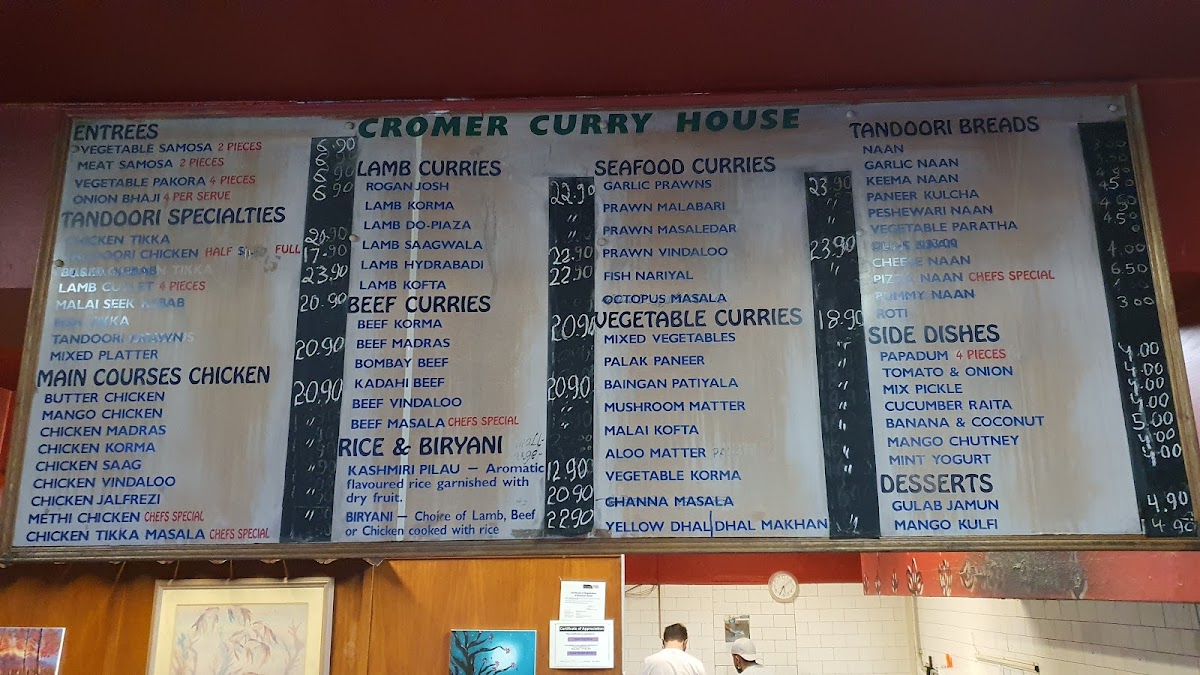 CROMER CURRY HOUSE
ENTREES
VEGETABLE SAMOSA 2 PIECES 6.90
MEAT SAMOSA 2 PIECES 6.90
VEGETABLE PAKORA 4 PIECES 6.90
ONION BHAJI 4 PER SERVE 6.90
TANDOORI SPECIALTIES
CHICKEN TIKKA
TANDOORI CHICKEN HALF FULL 17.90
LAMB CUTLET 4 PIECES 23.90
MALAI SEEK KEBAB 20.90
TIKKA
TANDOORI PRAWN
MIXED PLATTER 20.90
MAIN COURSES CHICKEN
BUTTER CHICKEN 20.90
MANGO CHICKEN "
CHICKEN MADRAS "
CHICKEN KORMA "
CHICKEN SAAG "
CHICKEN VINDALOO "
CHICKEN JALFREZI "
METHI CHICKEN CHEFS SPECIAL "
CHICKEN TIKKA MASALA CHEFS SPECIAL "
LAMB CURRIES
ROGAN JOSH 22.90
LAMB KORMA "
LAMB DO-PIAZA "
LAMB SAAGWALA 22.90
LAMB HYDRABADI 22.90
LAMB KOFTA
BEEF CURRIES
BEEF KORMA 20.90
BEEF MADRAS
BOMBAY BEEF
KADAHI BEEF 20.90
BEEF VINDALOO "
BEEF MASALA CHEFS SPECIAL "
RICE & BIRYANI
KASHMIRI PILAU — Aromatic 12.90
flavoured rice garnished with 20.90
dry fruit.
BIRYANI — Choice of Lamb, Beef 22.90
or Chicken cooked with rice
SEAFOOD CURRIES
GARLIC PRAWNS 23.90
PRAWN MALABARI "
PRAWN MASALEDAR "
PRAWN VINDALOO 23.90
FISH NARIYAL "
OCTOPUS MASALA
VEGETABLE CURRIES
MIXED VEGETABLES 18.90
PALAK PANEER "
BAINGAN PATIYALA "
MUSHROOM MATTER "
MALAI KOFTA "
ALOO MATTER "
VEGETABLE KORMA "
CHANNA MASALA "
YELLOW DHAL/DHAL MAKHAN "
TANDOORI BREADS
NAAN
GARLIC NAAN
KEEMA NAAN
PANEER KULCHA
PESHEWARI NAAN
VEGETABLE PARATHA
CHEESE NAAN
PIZZA NAAN CHEFS SPECIAL
NAAN
ROTI 3.00
SIDE DISHES
PAPADUM 4 PIECES 4.00
TOMATO & ONION 4.00
MIX PICKLE 4.00
CUCUMBER RAITA 4.00
BANANA & COCONUT 5.00
MANGO CHUTNEY 4.00
MINT YOGURT 4.00
DESSERTS
GULAB JAMUN 4.90
MANGO KULFI 4.90
Certificate of Appreciation